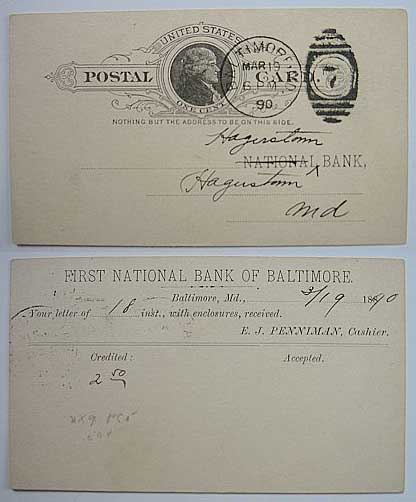 UNITED STATES
POSTAL CARD.
ONE CENT
BALTIMORE, MD.
MAR 19
6 P.M.
90
7
NOTHING BUT THE ADDRESS TO BE ON THIS SIDE.
Hagerstown
NATIONAL BANK,
Hagerstown
Md
FIRST NATIONAL BANK OF BALTIMORE.
Baltimore, Md., 3/19 1890
Your letter of 18 inst., with enclosures, received.
E. J. PENNIMAN, Cashier.
Credited: Accepted.
2 50